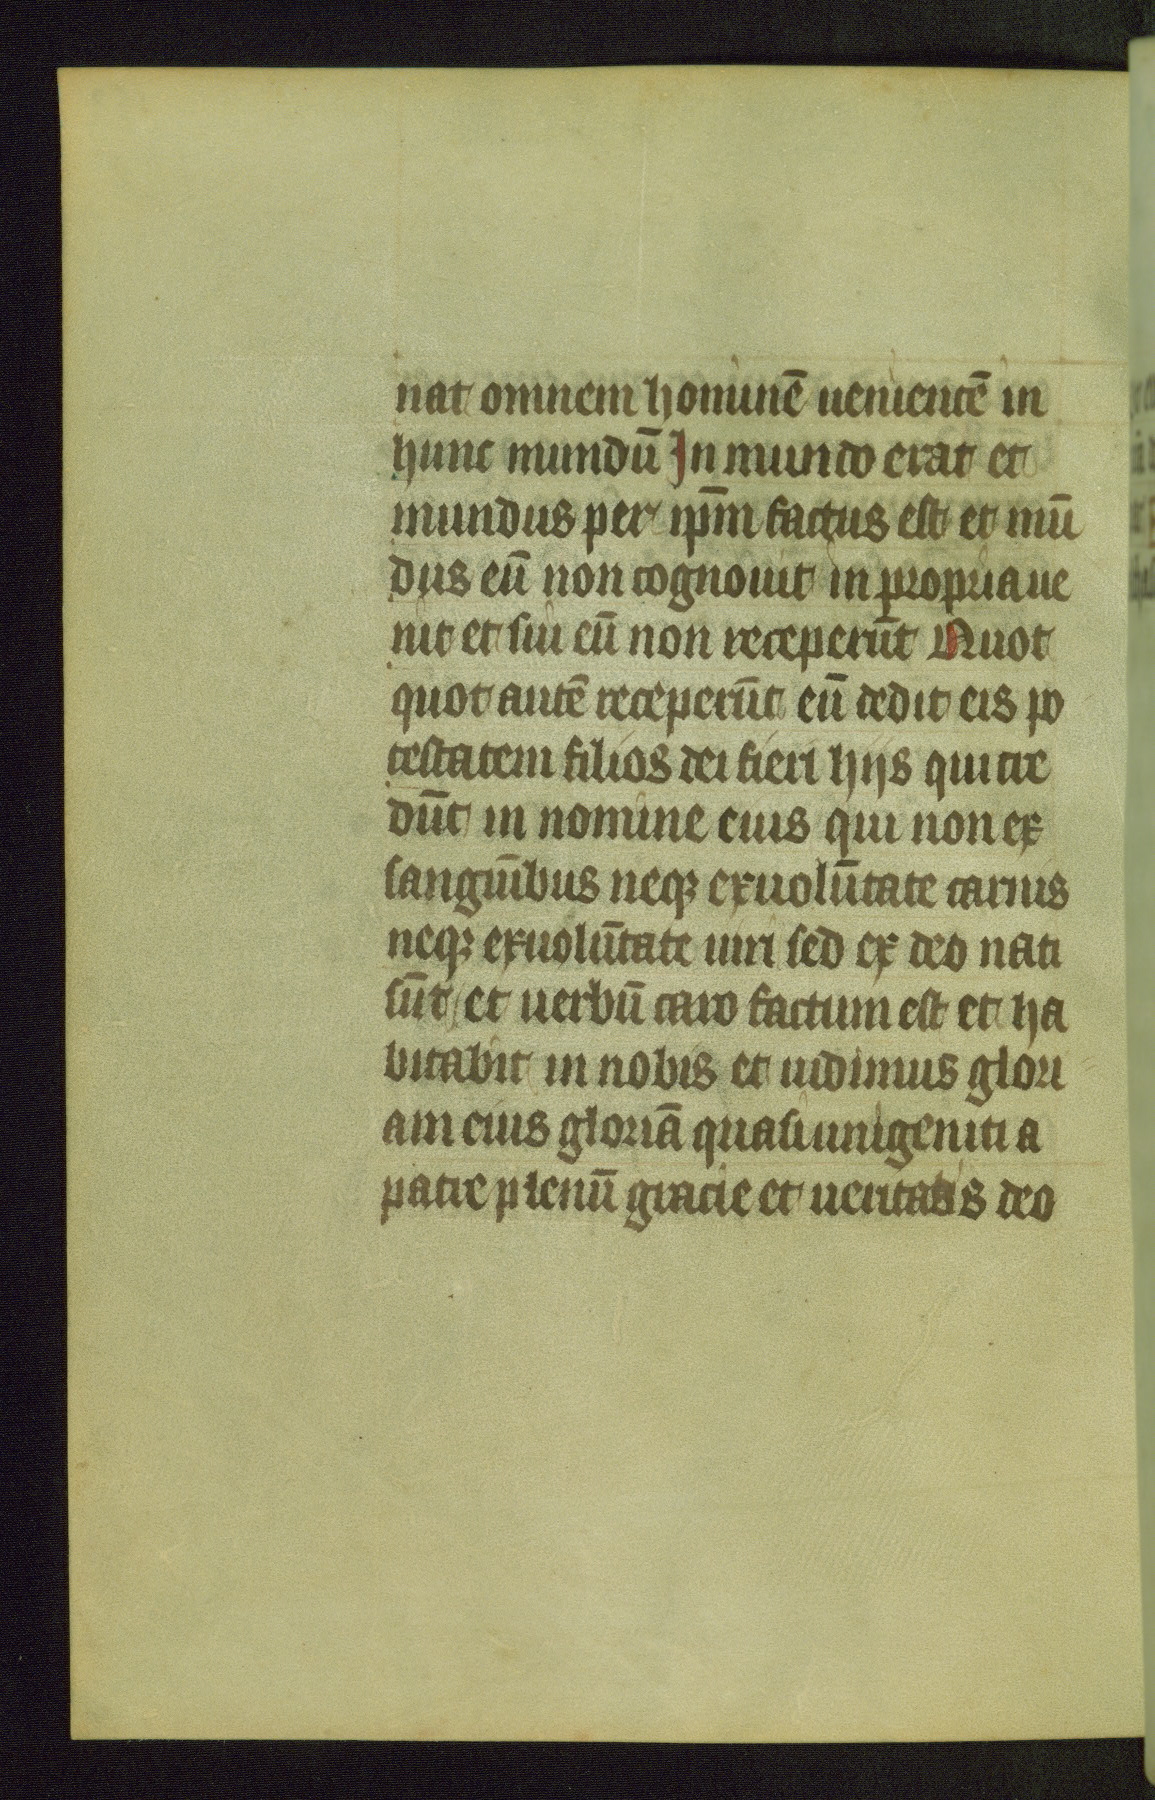 nat omnem hominē uenientē in
hunc mundū In mundo erat et
mundus per ip̄m factus est et mū
dus eū non cognouit in propria ue
nit et sui eū non receperūt Quot
quot autē receperūt eū dedit eis po
testatem filios dei fieri hijs qui cre
dūt in nomine eius qui non ex
sanguībus neqꝫ ex uolūtate carnis
neqꝫ ex uolūtate uiri sed ex deo nati
sūt et uerbū caro factum est et ha
bitabit in nobis et uidimus glori
am eius gloriā quasi unigeniti a
patre plenū gracie et ueritatis deo